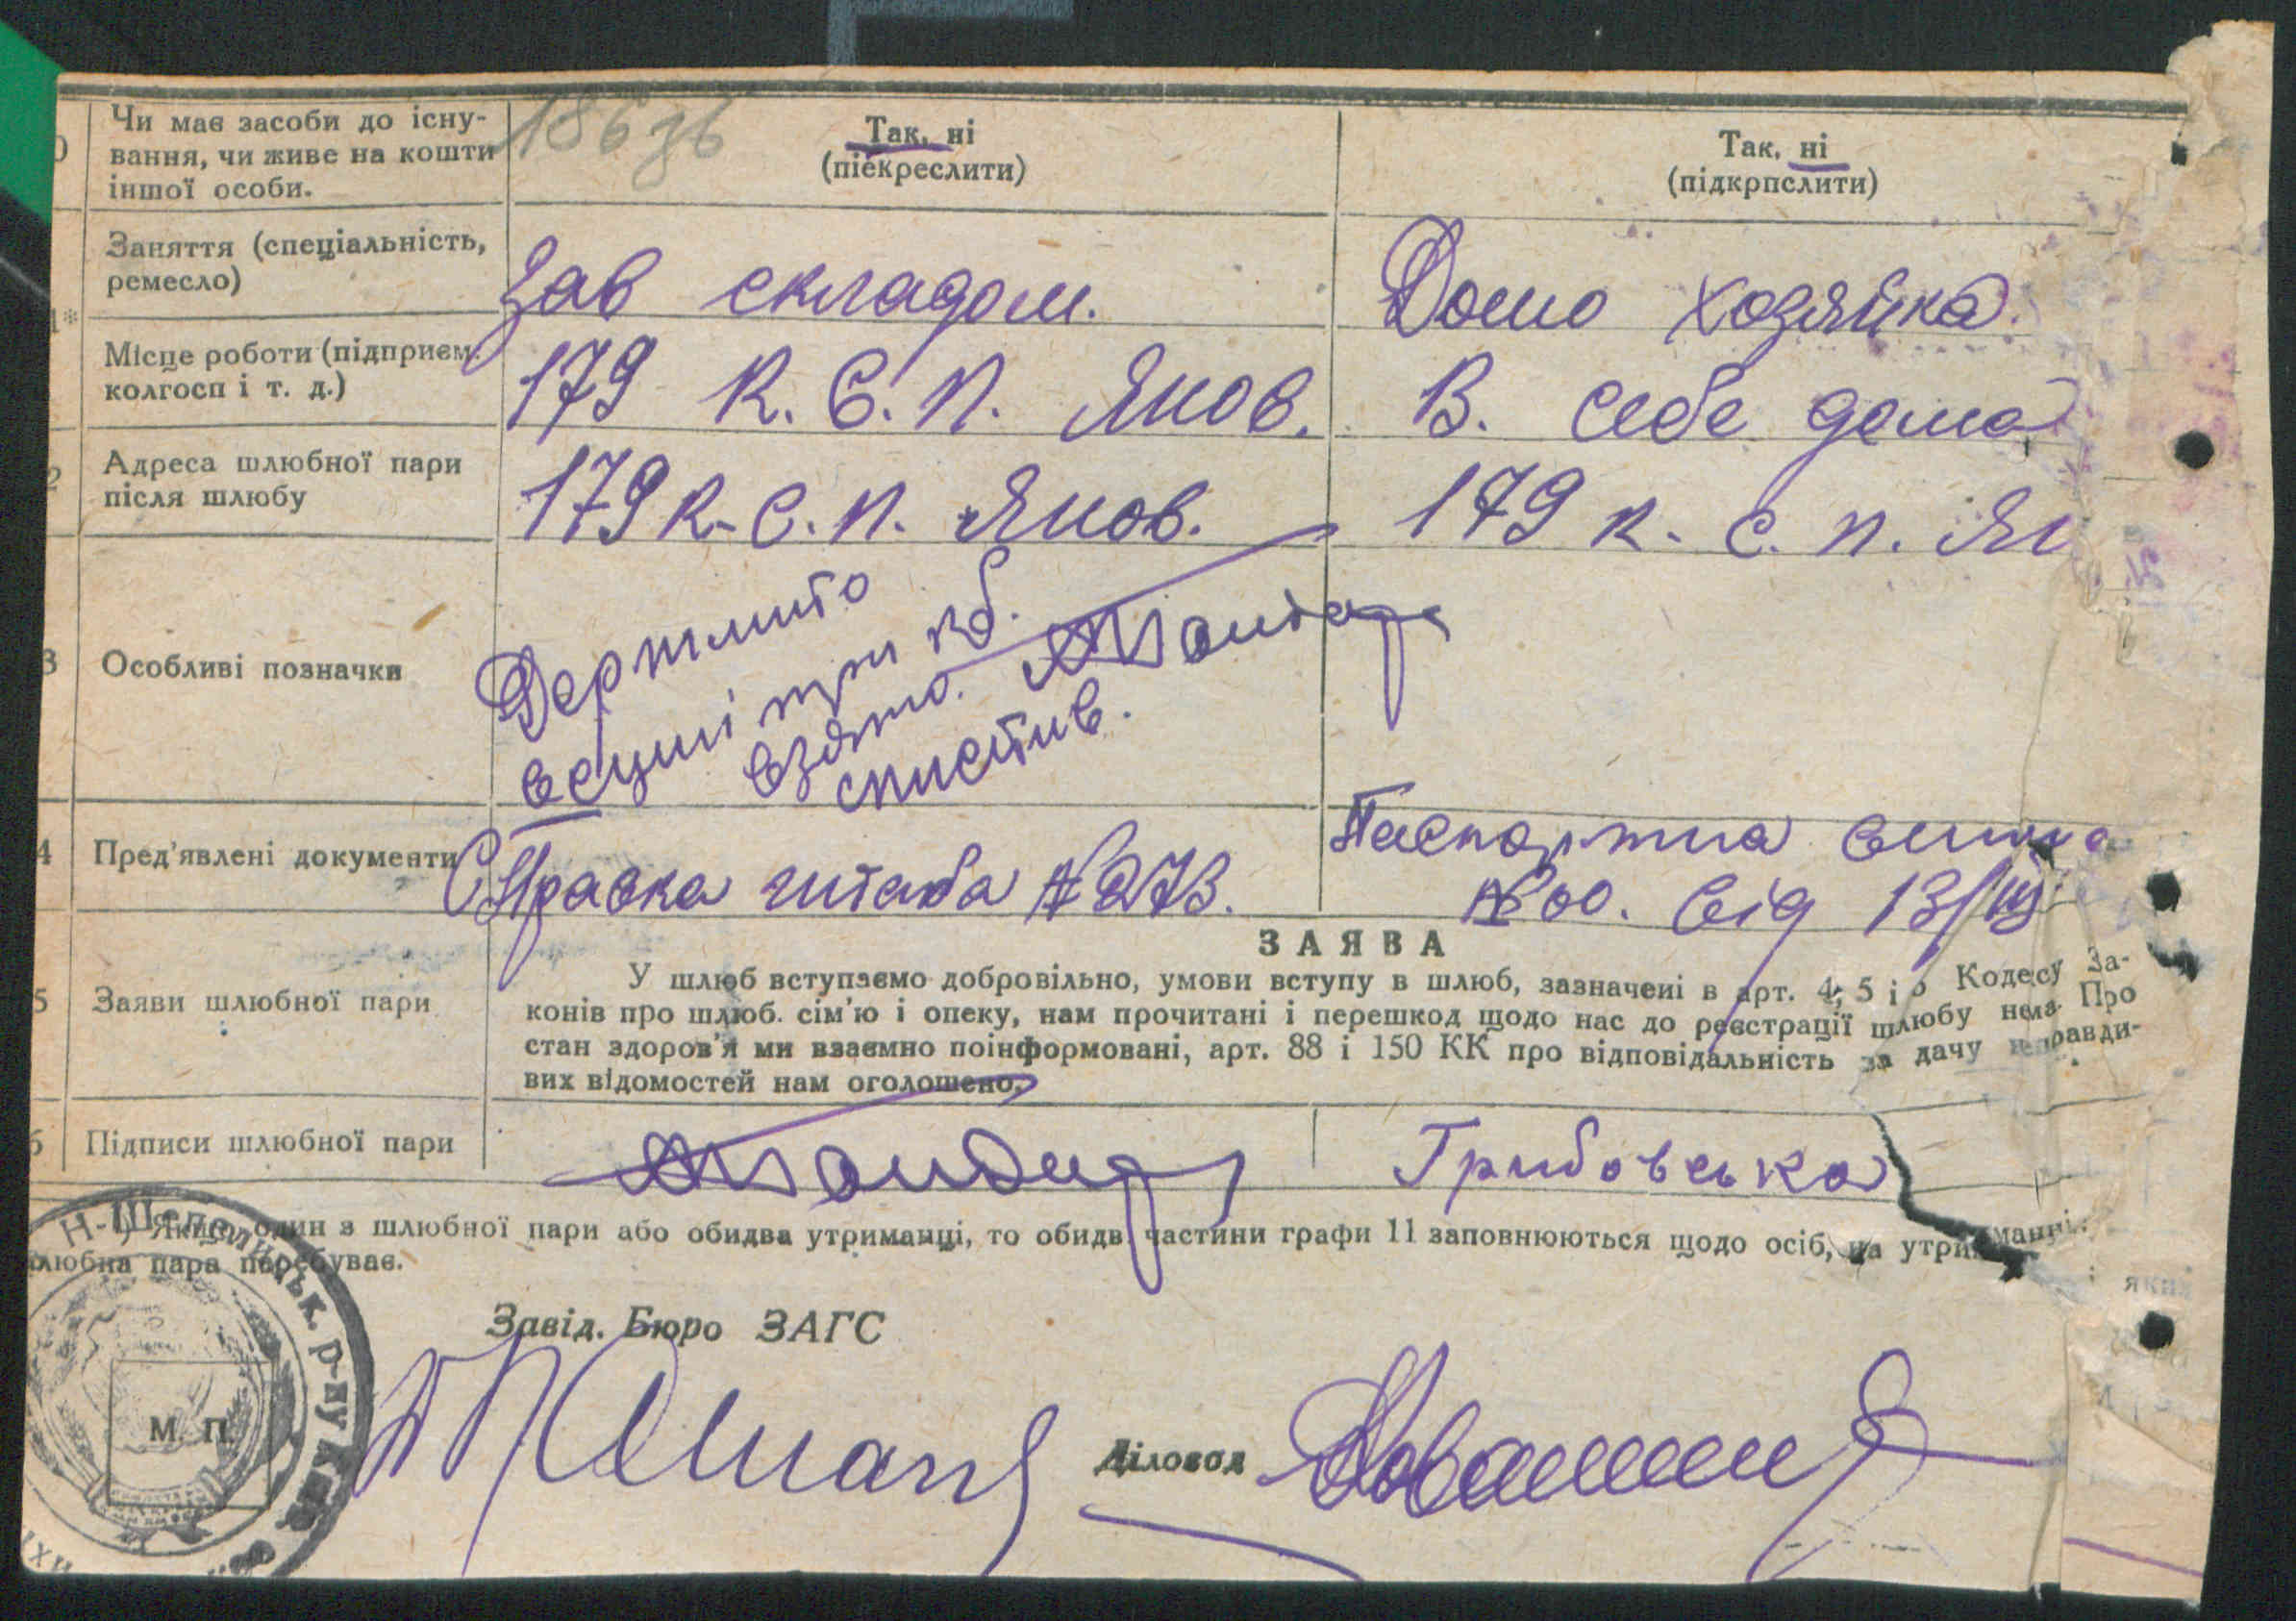 Чи має засоби до існу-
вання, чи живе на кошти
іншої особи.
186зв
Так, ні
(піекреслити)
Так, ні
(підкрпслити)
Заняття (спеціальність,
ремесло)
Зав складом.
Домо хозяйка.
1*
Місце роботи (підприєм.
колгосп і т. д.)
179 К. С. П. Янов.
В. себе дома
2
Адреса шлюбної пари
після шлюбу
179 к. с. п. Янов.
179 к. с. п. Ян
3
Особливі позначки
при
взято.
4
Пред'явлені документи
Справка штаба № 273.
Паспортна
№ 60. від 13/III
ЗАЯВА
5
Заяви шлюбної пари
У шлюб вступаємо добровільно, умови вступу в шлюб, зазначені в арт. 4, 5 і 6 Кодесу За-
конів про шлюб. сім'ю і опеку, нам прочитані і перешкод щодо нас до реєстрації шлюбу нема. Про
стан здоров'я ми взаємно поінформовані, арт. 88 і 150 КК про відповідальність за дачу неправди-
вих відомостей нам оголошено.
6
Підписи шлюбної пари
Грибовська
Якщо один з шлюбної пари або обидва утриманці, то обидві частини графи 11 заповнюються щодо осіб, на утриманні
шлюбна пара перебуває.
яких
Н-Шепелицьк. р-ну
Завід. Бюро ЗАГС
М. П.
Діловод